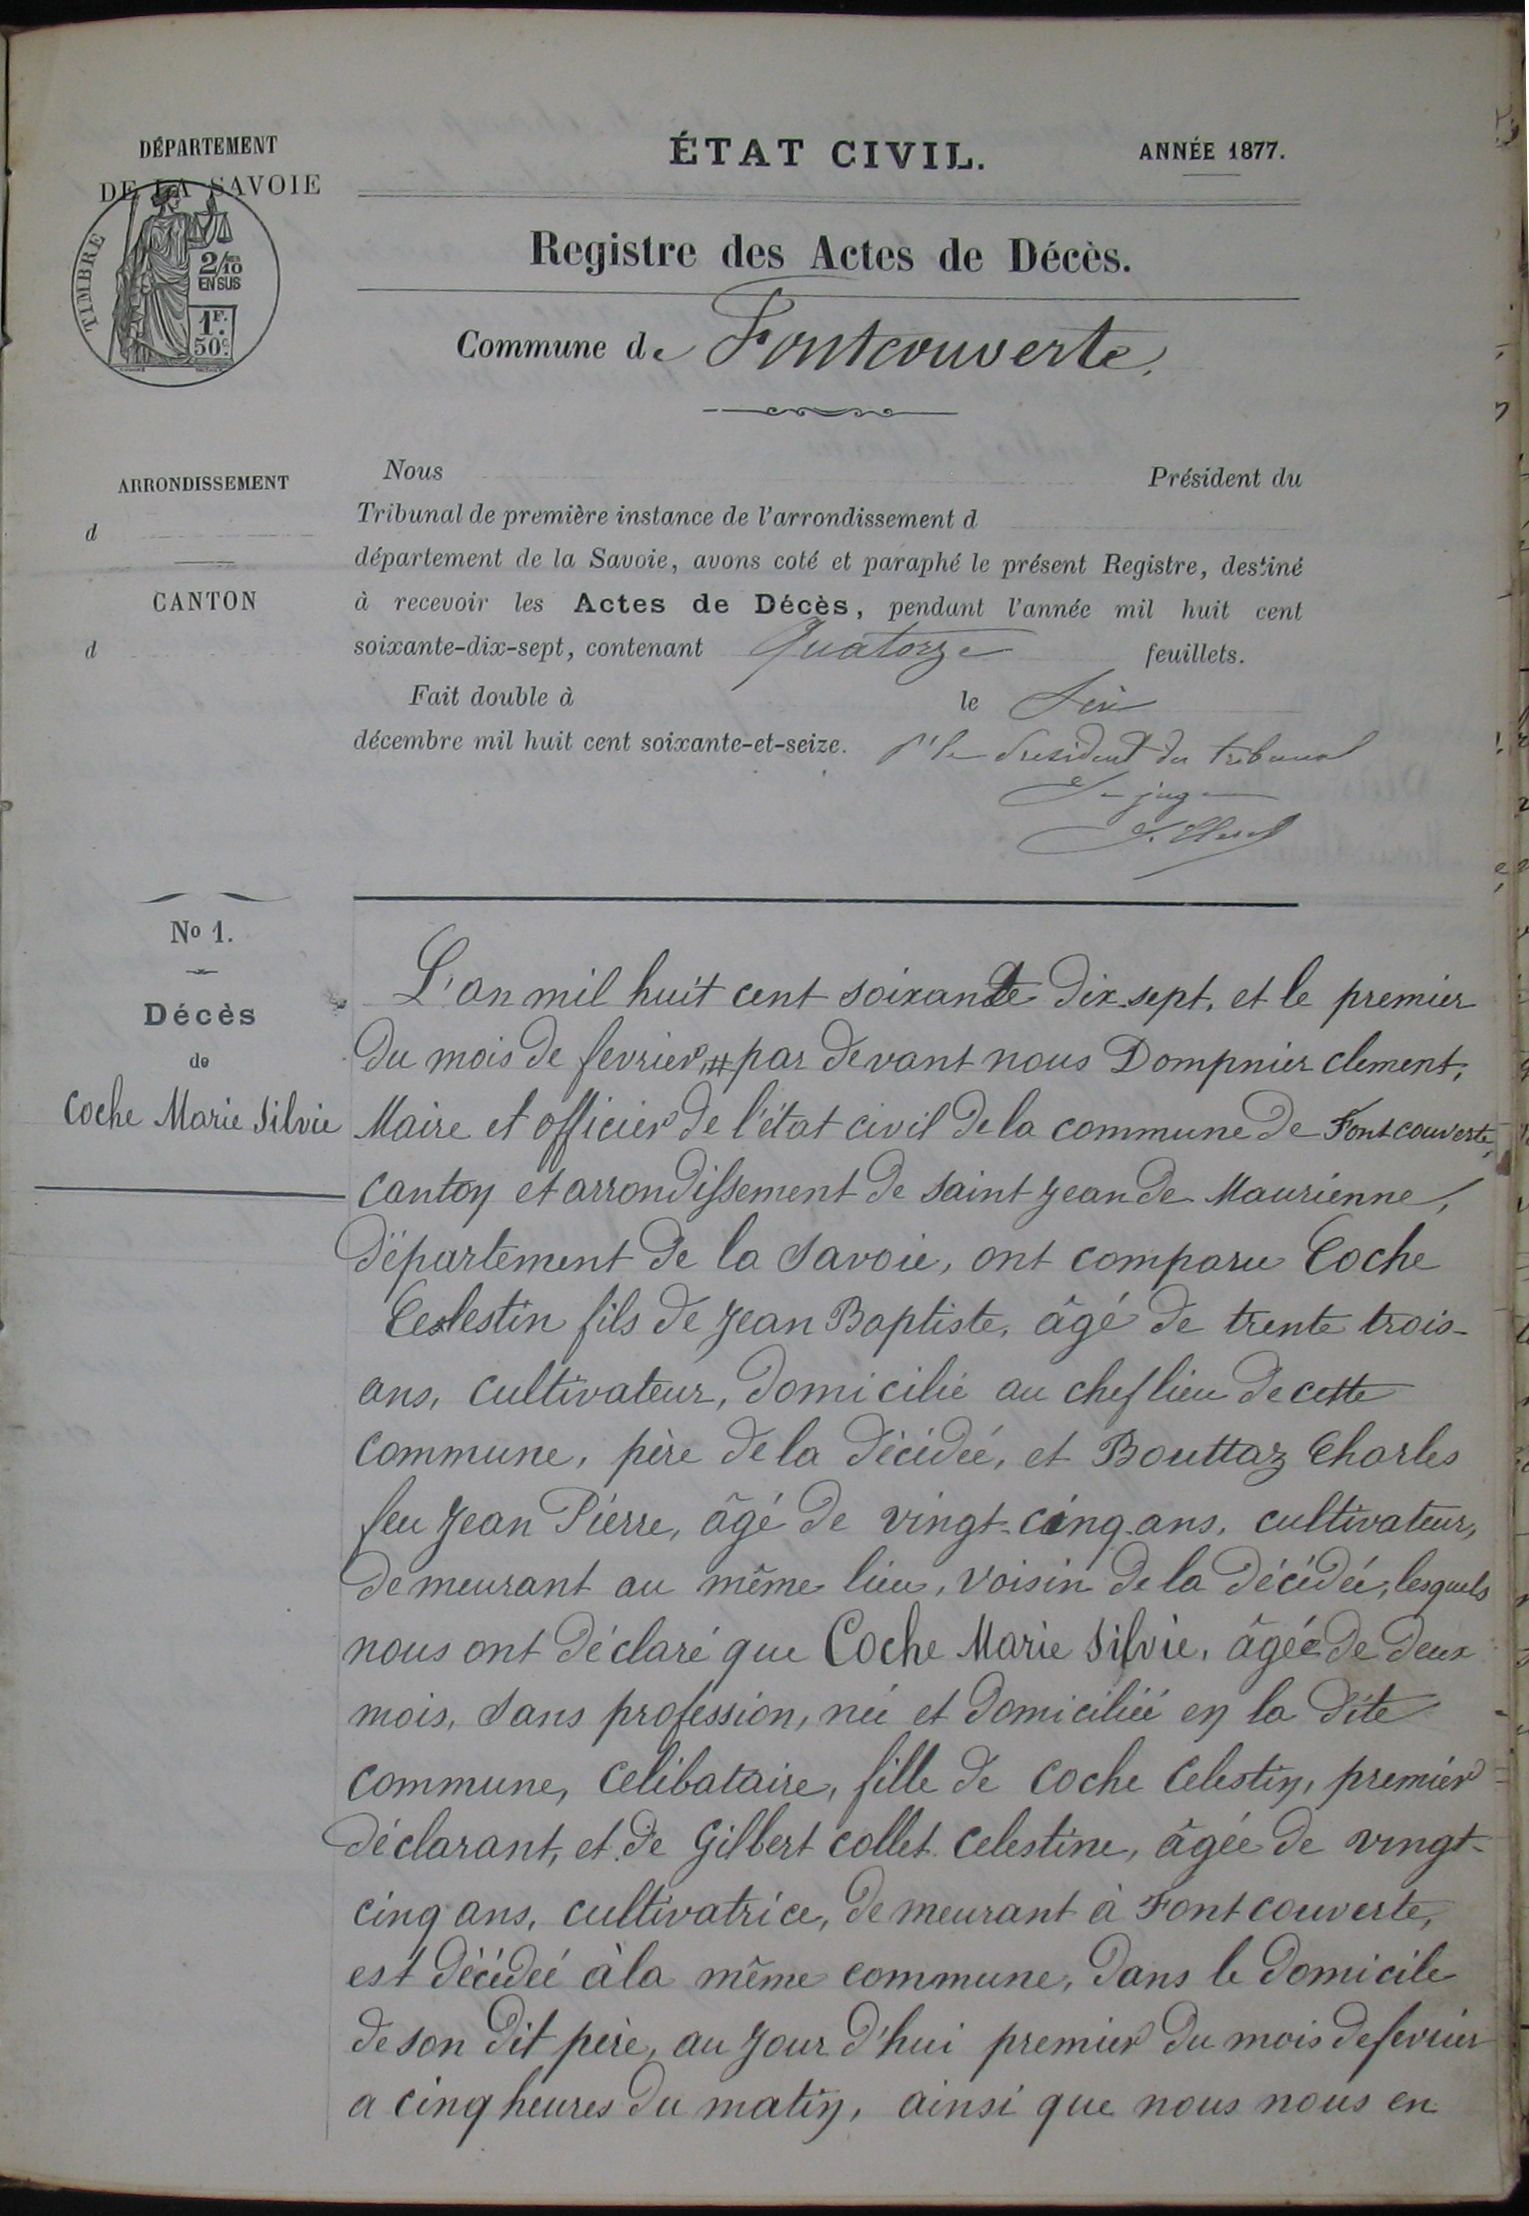 DÉPARTEMENT
DE LA SAVOIE
TIMBRE
2/10
EN SUS
1F.
50c.
ÉTAT CIVIL.
ANNÉE 1877.
Registre des Actes de Décès.
Commune de Fontcouverte.
ARRONDISSEMENT
d
CANTON
d
Nous Président du
Tribunal de première instance de l'arrondissement d
département de la Savoie, avons coté et paraphé le présent Registre, destiné
à recevoir les Actes de Décès, pendant l'année mil huit cent
soixante-dix-sept, contenant Quatorze feuillets.
Fait double à le Six
décembre mil huit cent soixante-et-seize. pr le President du tribunal
Le juge
No 1.
Décès
de
Coche Marie Silvie
L'an mil huit cent soixante dix-sept, et le premier
du mois de fevrier, # par devant nous Dompnier clement,
Maire et officier de l'état civil de la commune de Fontcouverte,
canton et arrondissement de saint jean de Maurienne,
département de la Savoie, ont comparu Coche
Celestin fils de jean Baptiste, âgé de trente trois-
ans, cultivateur, domicilié au chef lieu de cette
commune, père de la décédée, et Bouttaz Charles
feu jean Pierre, âgé de vingt-cinq ans, cultivateur,
demeurant au même lieu, voisin de la décédée, lesquels
nous ont déclaré que Coche Marie Silvie, âgée de deux
mois, sans profession, née et domiciliée en la dite
commune, celibataire, fille de Coche Celestin, premier
déclarant, et de Gilbert collet celestine, âgée de vingt-
cinq ans, cultivatrice, demeurant à Fontcouverte,
est décédée à la même commune, dans le domicile
de son dit père, au jour d'hui premier du mois de fevrier
a cinq heures du matin, ainsi que nous nous en